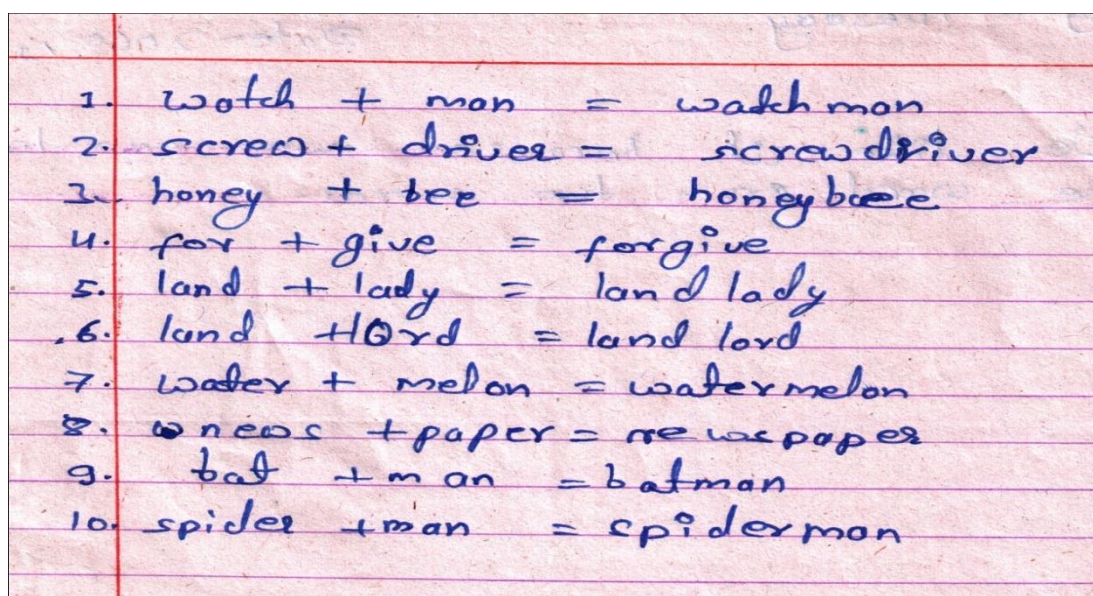 1. watch + man = watchman
2. screw + driver = screwdriver
3. honey + bee = honeybee
4. for + give = forgive
5. land + lady = land lady
6. land + lord = land lord
7. water + melon = watermelon
8. news + paper = newspaper
9. bat + man = batman
10. spider + man = spiderman